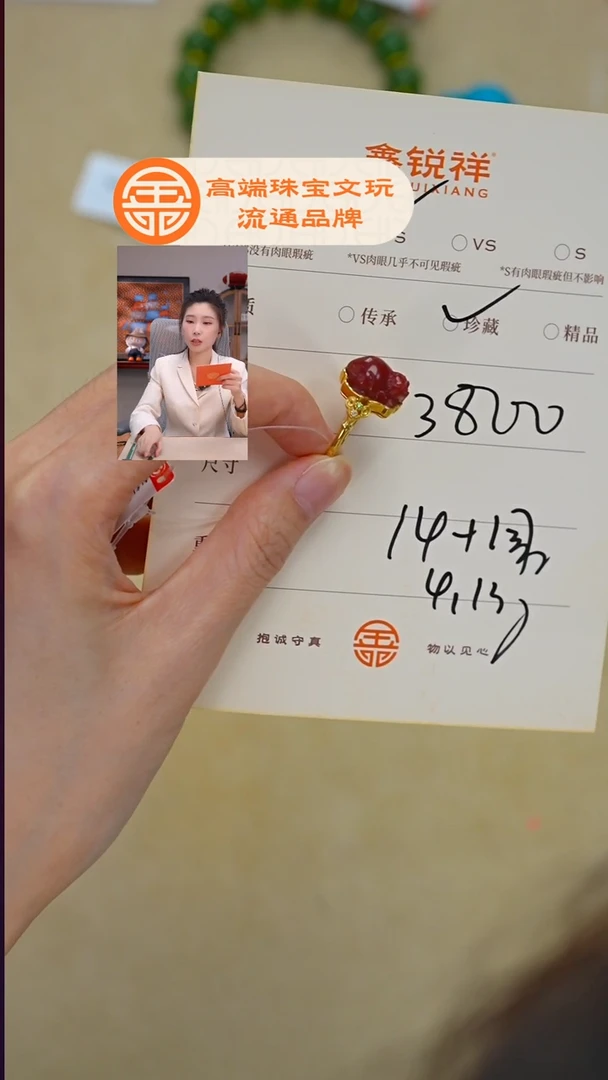 鑫锐祥
UIXIANG
高端珠宝文玩
流通品牌
S
VS
S
没有肉眼瑕疵
*VS肉眼几乎不可见瑕疵
*S有肉眼瑕疵但不影响
质
传承
珍藏
精品
3800
尺寸
14+13
4.13g
抱诚守真
物以见心